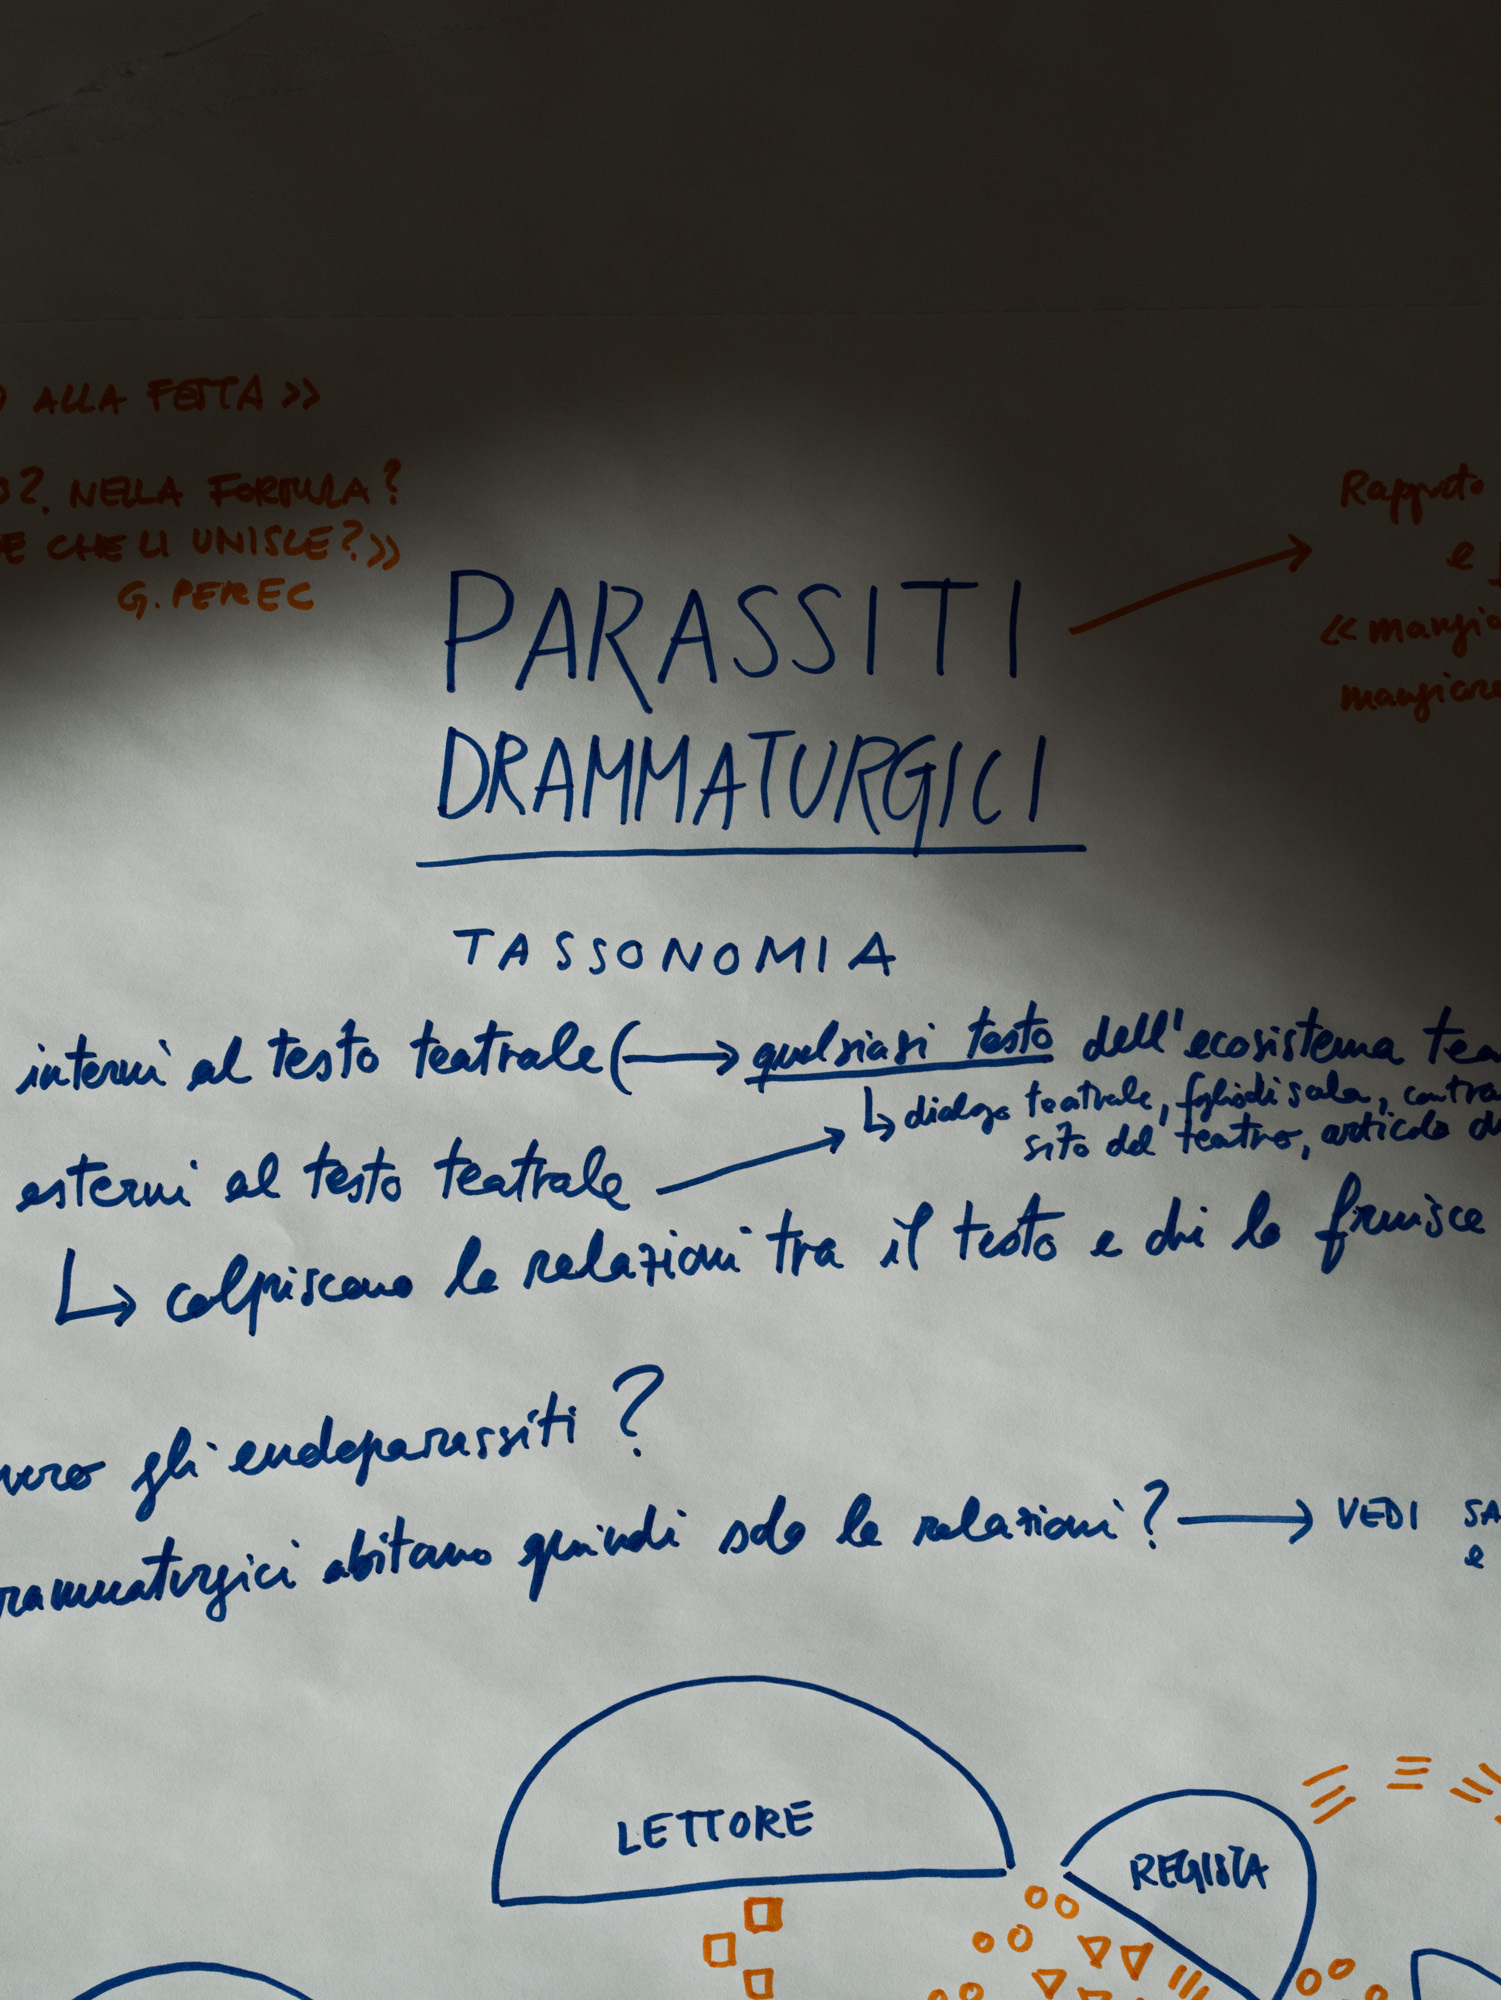 ALLA FESTA »
NELLA FORMULA?
E CHE LI UNISCE?»
G. PEREC
Rapporto
e
« mangia
mangiare
PARASSITI
DRAMMATURGICI
TASSONOMIA
interni al testo teatrale ( → qualsiasi testo dell'ecosistema tea
↳ dialogo teatrale, foglio di sala, contra
sito del teatro, articolo di
esterni al testo teatrale →
↳ colpiscono le relazioni tra il testo e chi lo fruisce
vero gli endoparassiti?
rammaturgici abitano quindi solo le relazioni? → VEDI SA
e
LETTORE
REGISTA